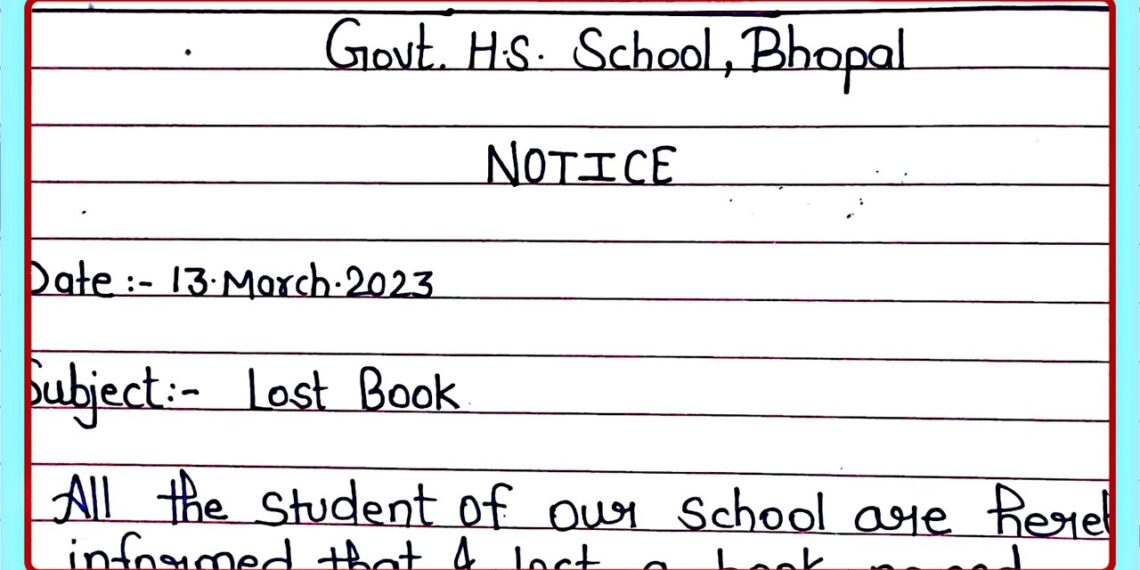 Govt. H.S. School, Bhopal
NOTICE
Date :- 13.March.2023
Subject:- Lost Book
All the student of our school are
informed that I lost a book